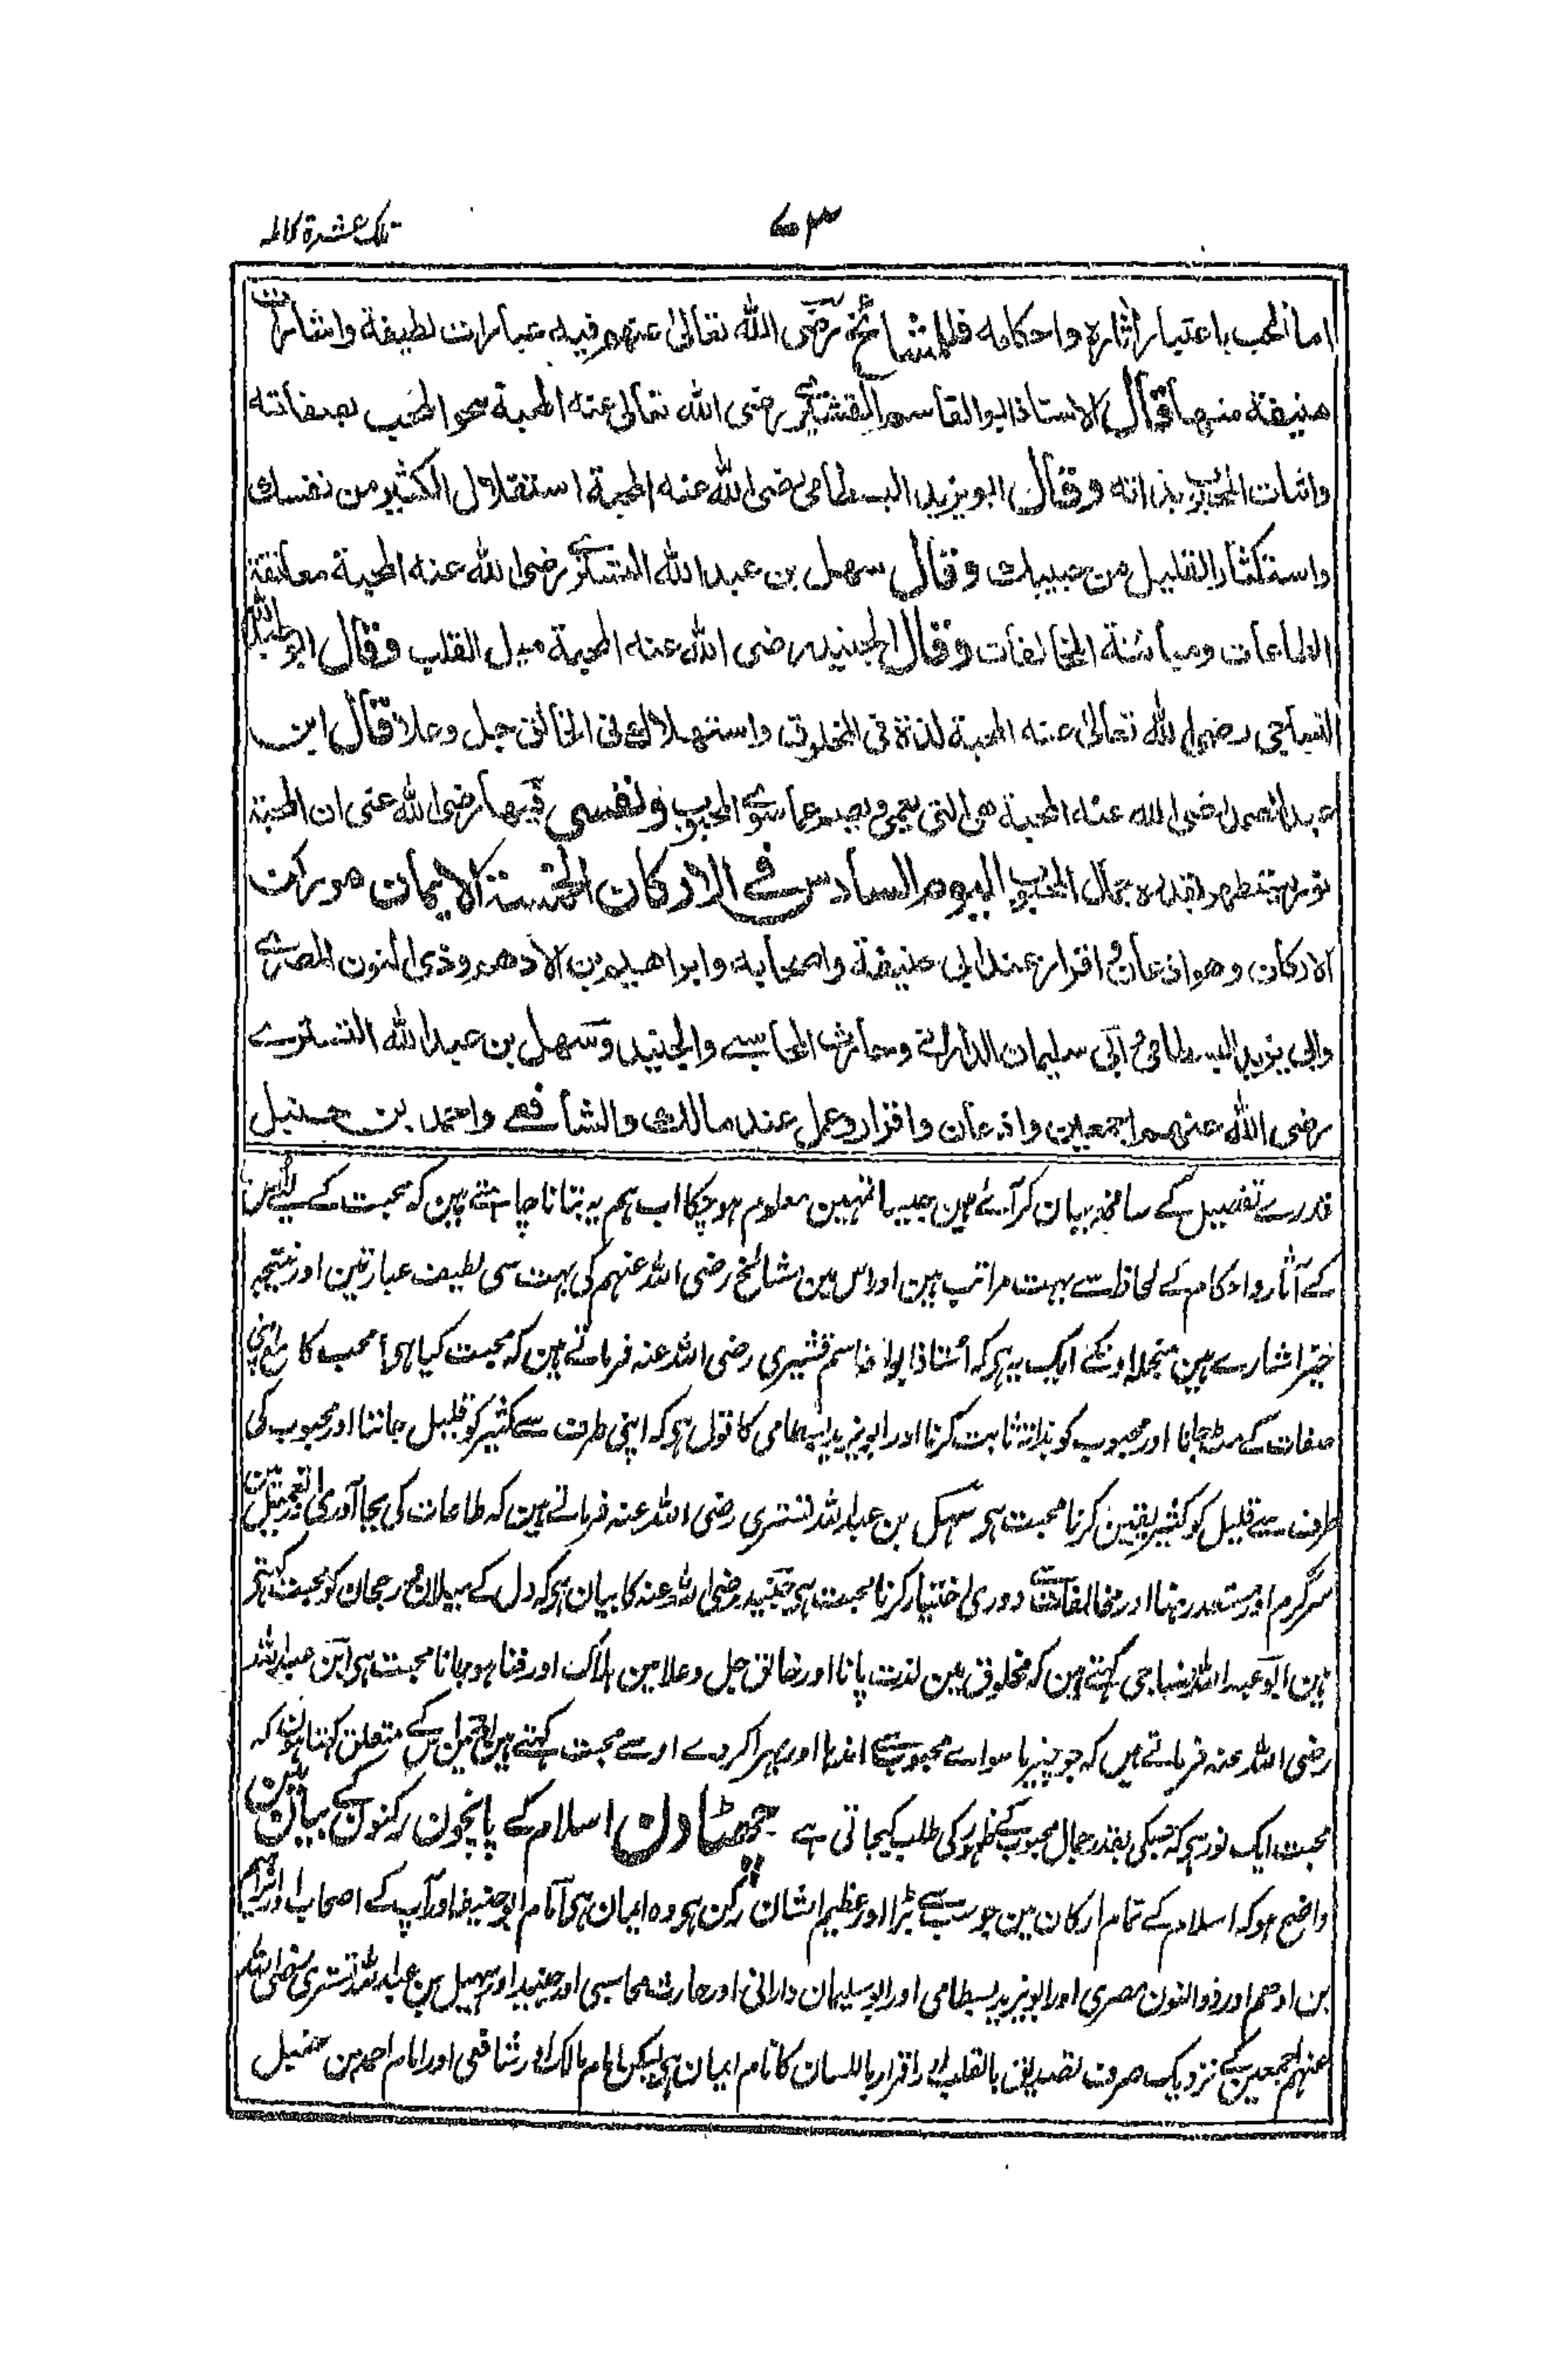 تلک عشرة کاملہ
۷۳
اما الحب باعتبار آثاره واحكامه فللمشائخ رضي الله تعالى عنهم فيه عبارات لطيفة واشارات
منيفة منها قال الاستاذ ابو القاسم القشيري رضى الله تعالى عنه المحبة محو المحب بصفاته
واثبات المحبوب بذاته وقال ابو يزيد البسطامي رضى الله عنه المحبة استقلال الكثير من نفسك
واستكثار القليل من حبيبك وقال سهل بن عبد الله التستري رضى الله عنه المحبة معانقة
الطاعات ومباينة المخالفات وقال الجنيد رضى الله عنه المحبة ميل القلب وقال ابو عبد الله
النباجي رضى الله تعالى عنه المحبة لذة فى المخلوق واستهلاك فى الخالق جل وعلا قال ابن
عبد الصمد رضى الله عنه المحبة هى التى يعمى ويصم عما سوى المحبوب ونفسى فيها رضى الله عنى ان المحبة
نور يستظهر بقدره جمال المحبوب اليوم السادس في الاركان الخمسة الايمان هو ركن
الاركان وهو اذعان و اقرار عند ابى حنيفة واصحابه وابراهيم بن الادهم وذى النون المصري
وابى يزيد البسطامي و ابى سليمان الدارانى وحارث المحاسبي والجنيد وسهل بن عبد الله التستري
رضى الله عنهم اجمعين واذعان واقرار وعمل عند مالك والشافعي واحمد بن حنبل
قدرے تفصیل کے ساتھ بیان کر آئے ہین جیسا تمہین معلوم ہو چکا اب ہم یہ بتانا چاہتے ہین کہ محبت کے لیے اس
کے آثار و احکام کے لحاظ سے بہت مراتب ہین اور اس مین مشائخ رضی اللہ عنہم کی بہت سی لطیف عبارتین اور نتیجہ
خیز اشارے ہین منجملہ اونکے ایک یہ ہو کہ استاذ ابوالقاسم قشیری رضی اللہ عنہ فرماتے ہین کہ محبت کیا ہی محب کا مع اپنی
صفات کے مٹ جانا اور محبوب کو بذاتہ ثابت کرنا اور ابویزید بسطامی کا قول ہو کہ اپنی طرف سے کثیر کو قلیل جاننا اور محبوب کی
طرف سے قلیل کو کثیر یقین کرنا محبت ہو سہل بن عبد اللہ تستری رضی اللہ عنہ فرماتے ہین کہ طاعات کی بجا آوری اور تعمیل مین
سرگرم اور مستعد رہنا اور مخالفات سے دوری اختیار کرنا محبت ہی جنید رضی اللہ عنہ کا بیان ہو کہ دل کے میلان و رجحان کو محبت کہتے
ہین ابو عبد اللہ نباجی کہتے ہین کہ مخلوق مین لذت پانا اور خالق جل وعلا مین ہلاک اور فنا ہو جانا محبت ہی ابن عبد اللہ
رضی اللہ عنہ فرماتے ہیں کہ جو چیز ماسوائے محبوب سے اندھا اور بہرا کر دے اوسے محبت کہتے ہین اس کے متعلق کہتا ہون کہ
محبت ایک نور ہی کہ جسکی بقدر جمال محبوب کے ظہور کی طلب کیجاتی ہے چھٹا دن اسلام کے پانچون رکنون کے بیان مین
واضح ہو کہ اسلام کے تمام ارکان مین جو سب سے بڑا اور عظیم الشان رکن ہو وہ ایمان ہی امام ابو حنیفہ اور آپ کے اصحاب اور ابراہیم
بن ادہم اور ذوالنون مصری اور ابویزید بسطامی اور ابو سلیمان دارانی اور حارث محاسبی اور جنید اور سہیل بن عبد اللہ تستری رضی اللہ
عنہم اجمعین کے نزدیک صرف تصدیق بالقلب اور اقرار باللسان کا نام ایمان ہی لیکن امام مالک اور شافعی اور امام احمد بن حنبل